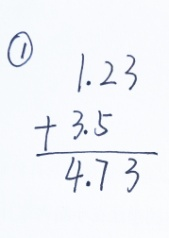 ①
1.23
+ 3.5
4.73